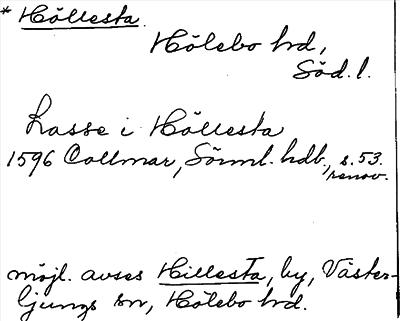 * Höllesta.
Hölebo hd,
Söd. l.
Lasse i Höllesta
1596 Collmar, Sörml. hdb., s. 53.
renov.
möjl. avses Hillesta, by, Väster-
ljungs sn, Hölebo hd.